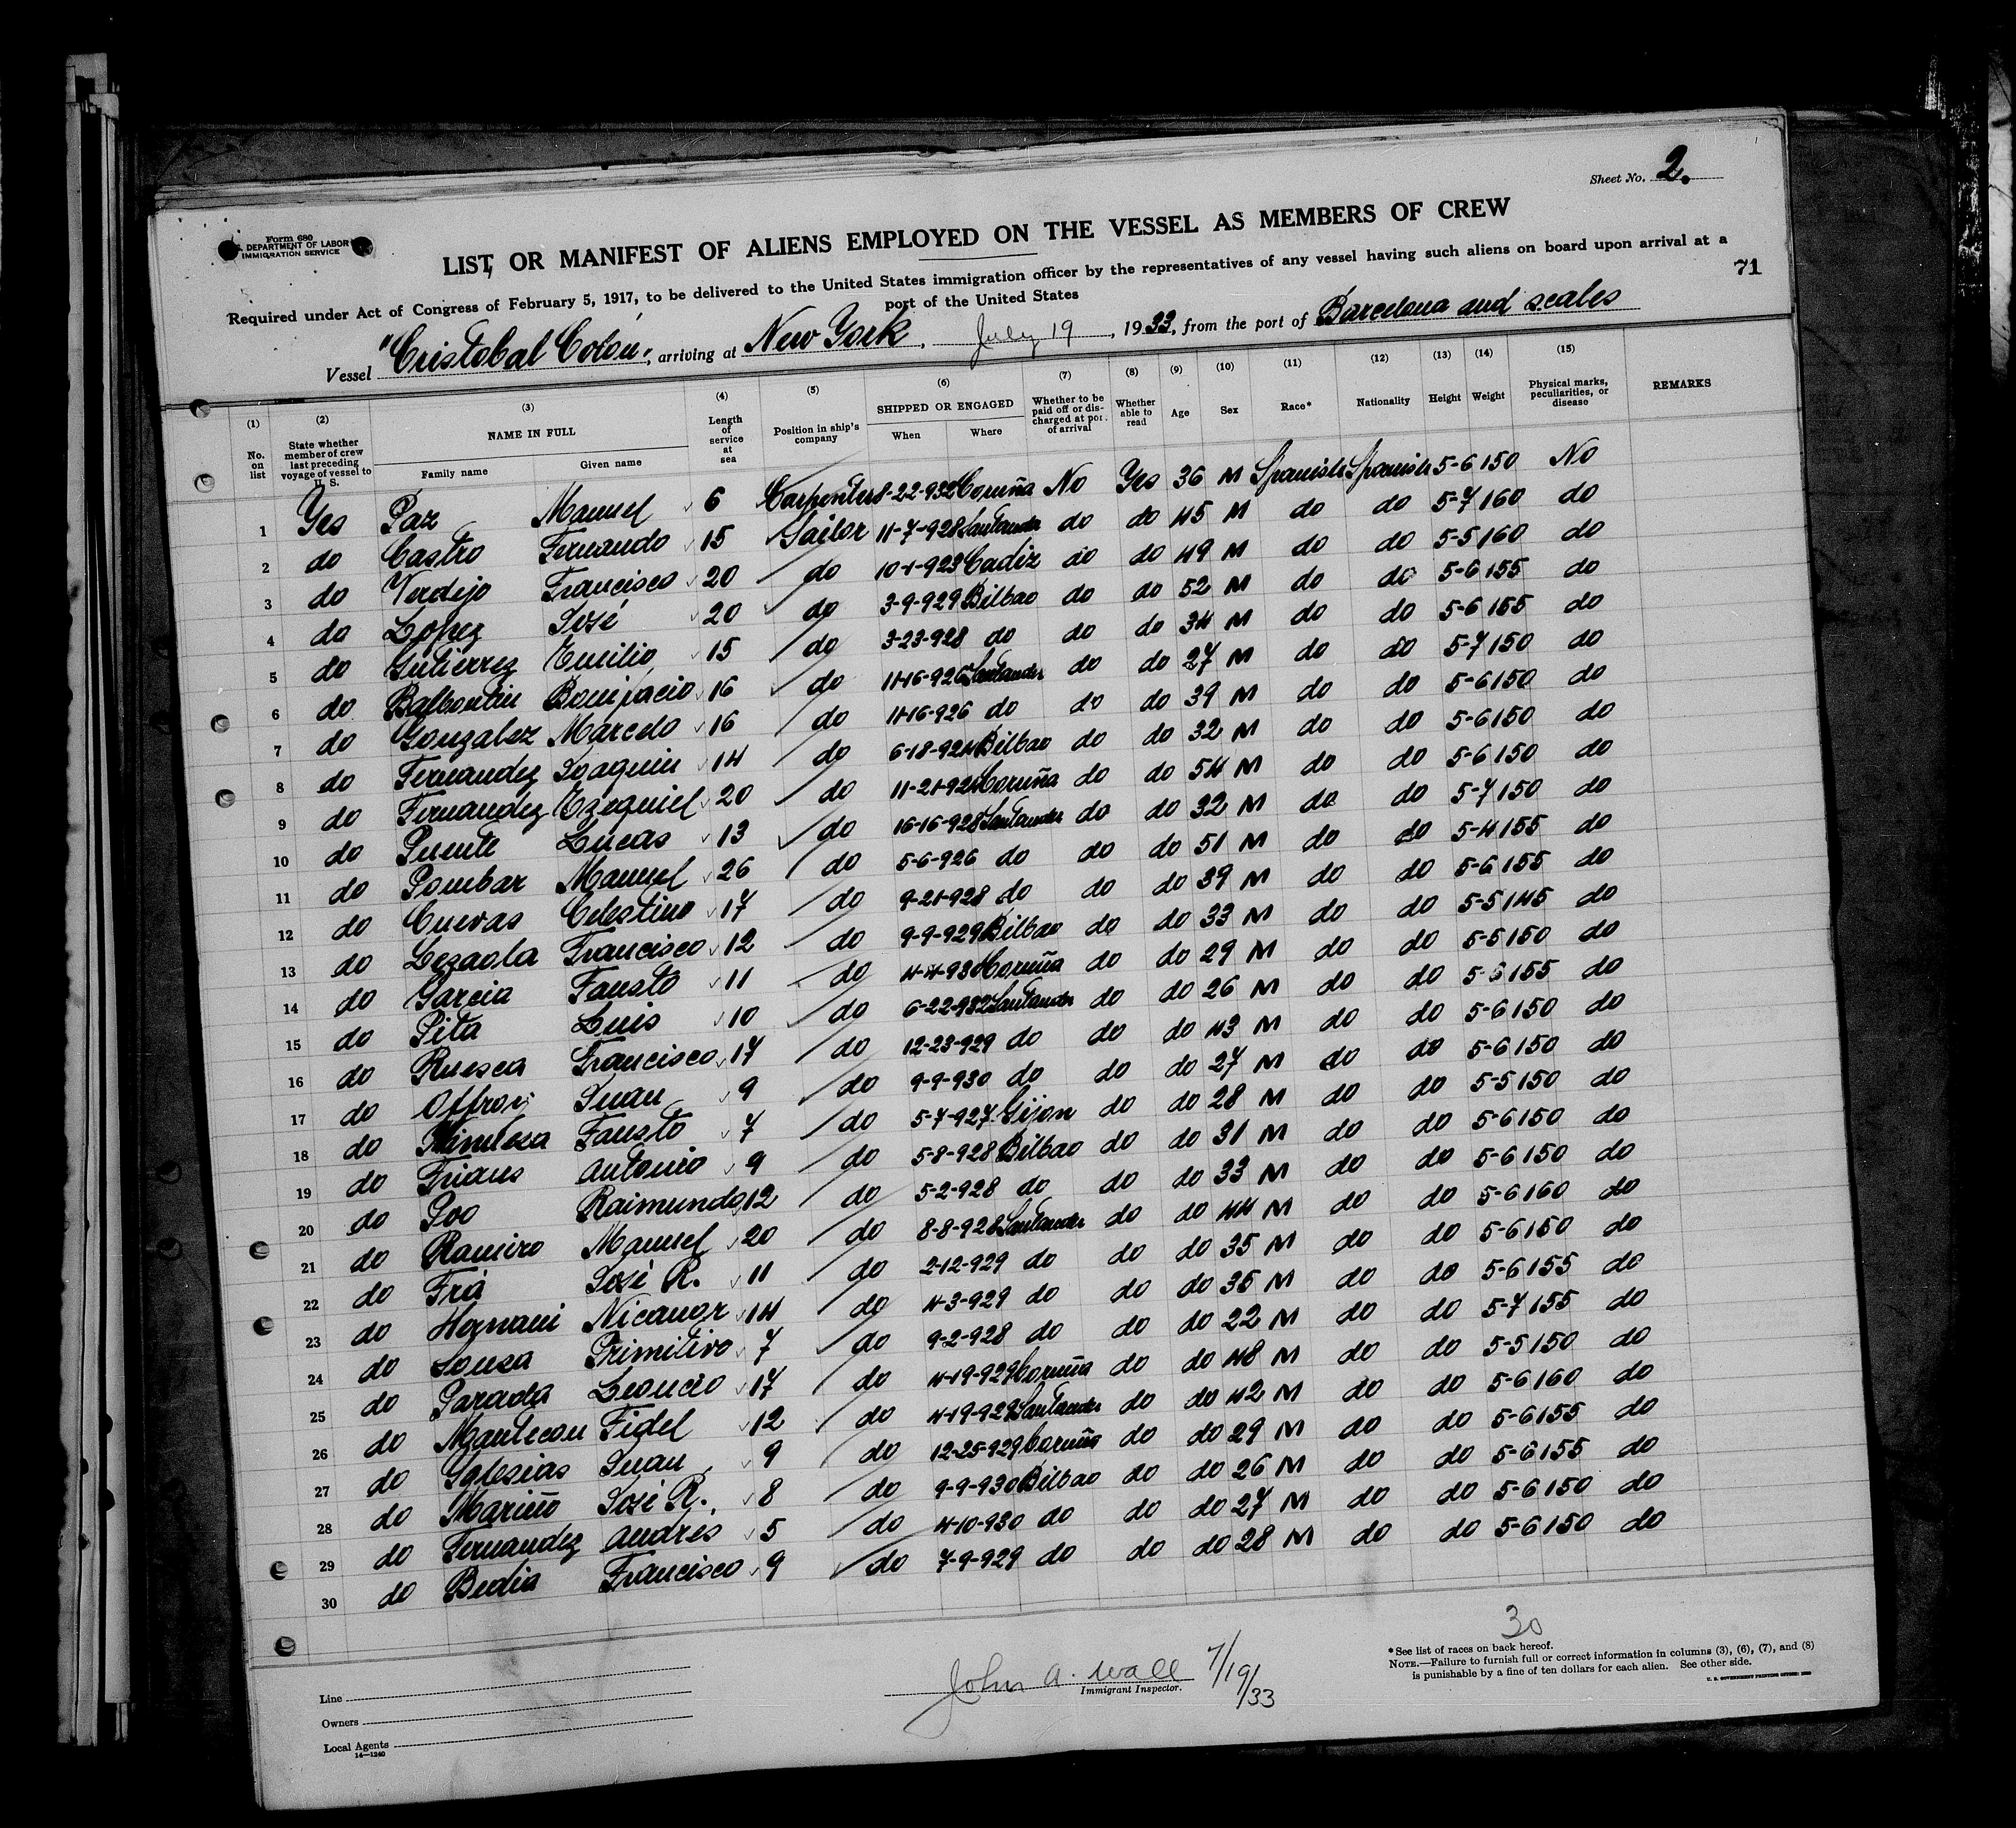 Sheet No. 2.
Form 680
U. S. DEPARTMENT OF LABOR
IMMIGRATION SERVICE
LIST, OR MANIFEST OF ALIENS EMPLOYED ON THE VESSEL AS MEMBERS OF CREW
Required under Act of Congress of February 5, 1917, to be delivered to the United States immigration officer by the representatives of any vessel having such aliens on board upon arrival at a
port of the United States
71
Vessel "Cristobal Colon", arriving at New York, July 19, 1933, from the port of Barcelona and scales
(1) (2) (3) (4) (5) (6) (7) (8) (9) (10) (11) (12) (13) (14) (15)
No. on list State whether member of crew last preceding voyage of vessel to U. S. NAME IN FULL Family name Given name Length of service at sea Position in ship's company SHIPPED OR ENGAGED When Where Whether to be paid off or discharged at port of arrival Whether able to read Age Sex Race* Nationality Height Weight Physical marks, peculiarities, or disease REMARKS
1 Yes Paz Manuel 6 Carpenter 8-22-932 Coruña No Yes 36 M Spanish Spanish 5-6 150 No
2 do Castro Fernando 15 Sailor 11-7-928 Santander do do 45 M do do 5-7 160 do
3 do Verdejo Francisco 20 do 10-1-923 Cadiz do do 49 M do do 5-5 160 do
4 do Lopez José 20 do 3-9-929 Bilbao do do 52 M do do 5-6 155 do
5 do Gutierrez Emilio 15 do 3-23-928 do do do 34 M do do 5-6 155 do
6 do Balbontin Bonifacio 16 do 11-16-926 Santander do do 27 M do do 5-7 150 do
7 do Gonzalez Marcelo 16 do 11-16-926 do do do 39 M do do 5-6 150 do
8 do Fernandez Joaquin 14 do 6-18-924 Bilbao do do 32 M do do 5-6 150 do
9 do Fernandez Ezequiel 20 do 11-21-924 Coruña do do 54 M do do 5-6 150 do
10 do Puente Lucas 13 do 16-16-928 Santander do do 32 M do do 5-7 150 do
11 do Pombar Manuel 26 do 5-6-926 do do do 51 M do do 5-4 155 do
12 do Cuevas Celestino 17 do 9-21-928 do do do 39 M do do 5-6 155 do
13 do Lezaola Francisco 12 do 9-9-929 Bilbao do do 33 M do do 5-5 145 do
14 do Garcia Fausto 11 do 4-4-930 Coruña do do 29 M do do 5-5 150 do
15 do Pita Luis 10 do 6-22-932 Santander do do 26 M do do 5-6 155 do
16 do Ruesca Francisco 17 do 12-23-929 do do do 43 M do do 5-6 150 do
17 do Juan 9 do 9-9-930 do do do 27 M do do 5-6 150 do
18 do Fausto 7 do 5-7-927 Gijon do do 28 M do do 5-5 150 do
19 do Frians Antonio 9 do 5-8-928 Bilbao do do 31 M do do 5-6 150 do
20 do Poo Raimundo 12 do 5-2-928 do do do 33 M do do 5-6 150 do
21 do Ramiro Manuel 20 do 8-8-928 Santander do do 44 M do do 5-6 160 do
22 do Frá José R. 11 do 2-12-929 do do do 35 M do do 5-6 150 do
23 do Hernani Nicanor 14 do 4-3-929 do do do 35 M do do 5-6 155 do
24 do Sousa Primitivo 7 do 9-2-928 do do do 22 M do do 5-7 155 do
25 do Parada Leoncio 17 do 4-19-929 Coruña do do 48 M do do 5-5 150 do
26 do Mantecon Fidel 12 do 4-19-929 Santander do do 42 M do do 5-6 160 do
27 do Yglesias Juan 9 do 12-25-929 Coruña do do 29 M do do 5-6 155 do
28 do Mariño José R. 8 do 9-9-930 Bilbao do do 26 M do do 5-6 155 do
29 do Fernandez Andrés 5 do 4-10-930 do do do 27 M do do 5-6 150 do
30 do Bedia Francisco 9 do 7-9-929 do do do 28 M do do 5-6 150 do
30
Line
Owners
Local Agents
14—1240
John A. Wall 7/19/33
Immigrant Inspector.
*See list of races on back hereof.
NOTE.—Failure to furnish full or correct information in columns (3), (6), (7), and (8)
is punishable by a fine of ten dollars for each alien. See other side.